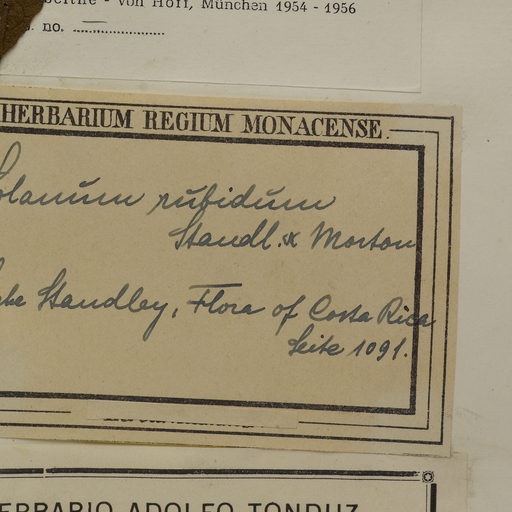 - von Hoff, München 1954 - 1956
no.
HERBARIUM REGIUM MONACENSE.
olanum rubidum
Standl. & Morton
Standley, Flora of Costa Rica
Seite 1091.
ERBARIO ADOLFO TONDUZ